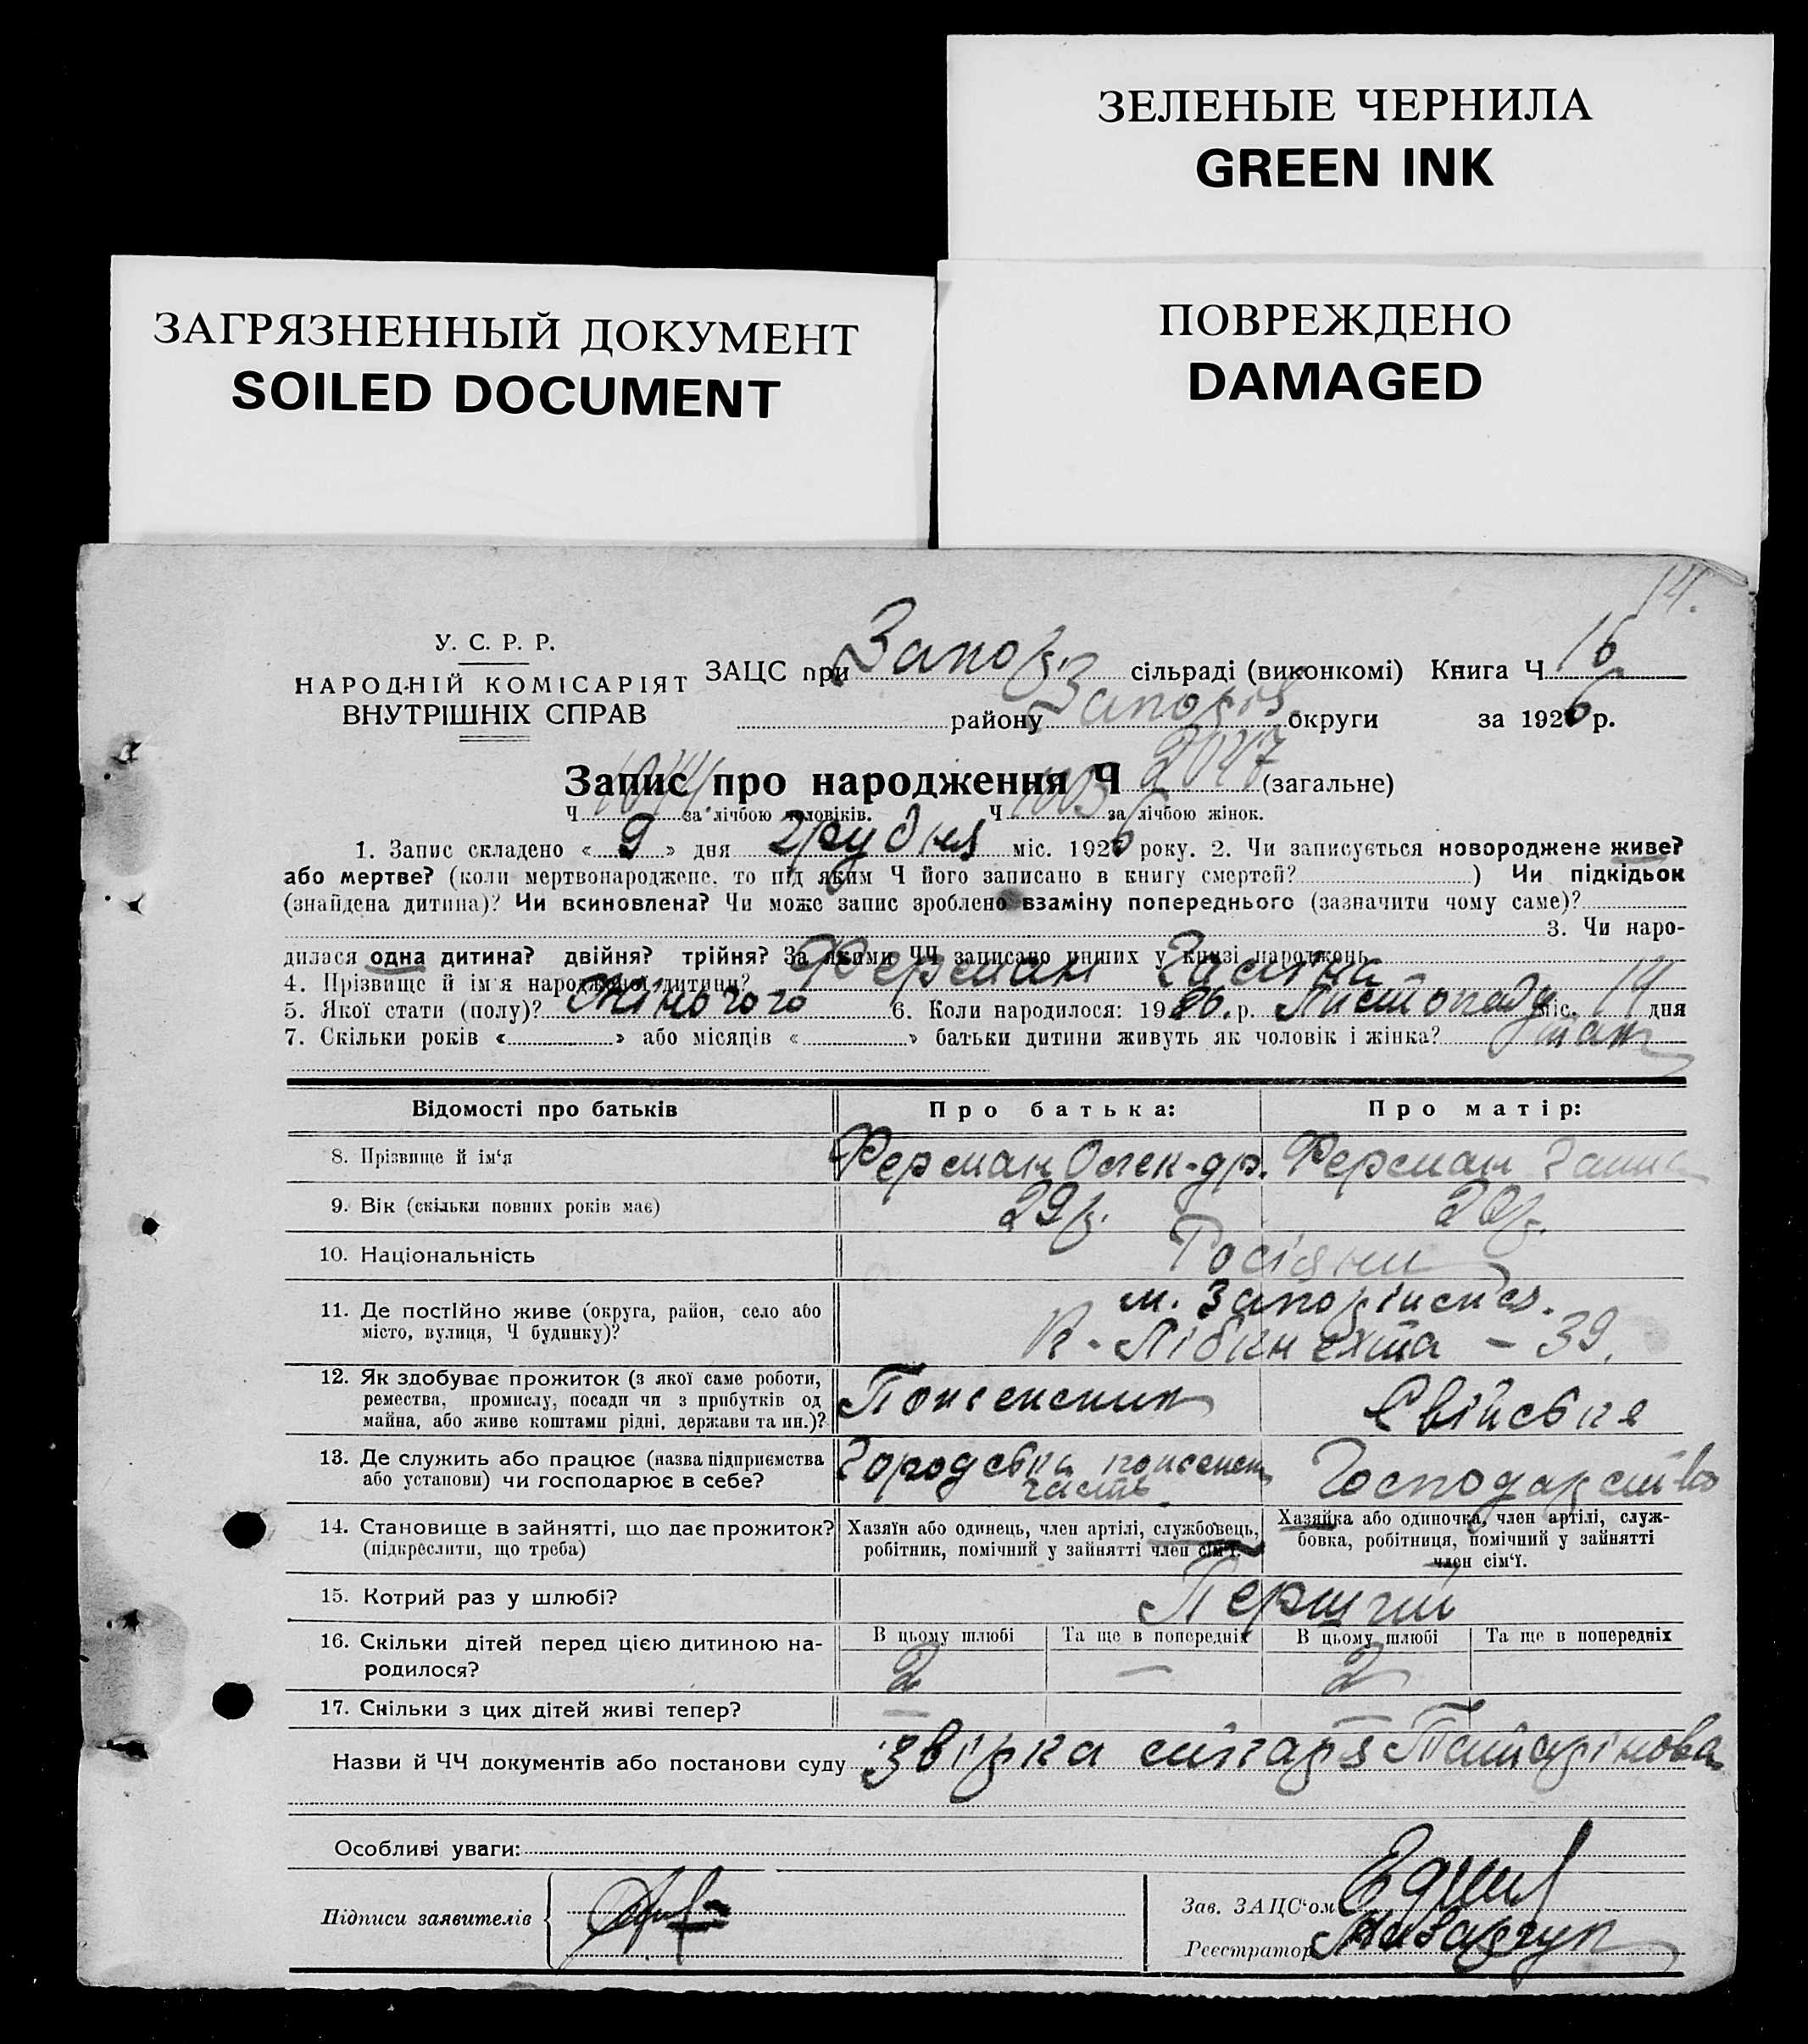 ЗЕЛЕНЫЕ ЧЕРНИЛА
GREEN INK
ЗАГРЯЗНЕННЫЙ ДОКУМЕНТ
SOILED DOCUMENT
ПОВРЕЖДЕНО
DAMAGED
14.
У. С. Р. Р.
НАРОДНІЙ КОМІСАРІЯТ
ВНУТРІШНІХ СПРАВ
ЗАЦС при Запор. сільраді (виконкомі) Книга Ч 16
району Запоріз округи за 1926 р.
Запис про народження Ч 2047 (загальне)
Ч 1044 за лічбою чоловіків. Ч 1003 за лічбою жінок.
1. Запис складено « 9 » дня Грудня міс. 1926 року. 2. Чи записується новороджене живе?
або мертве? (коли мертвонароджене, то під яким Ч його записано в книгу смертей? ) Чи підкідьок
(знайдена дитина)? Чи всиновлена? Чи може запис зроблено взаміну попереднього (зазначити чому саме)?
3. Чи наро-
дилася одна дитина? двійня? трійня? За якими ЧЧ записано инших у книзі народжень
4. Прізвище й ім'я народженої дитини? Ферман Галина
5. Якої стати (полу)? Жіночого 6. Коли народилося: 1926. р. Листопаду міс. 14 дня
7. Скільки років « » або місяців « » батьки дитини живуть як чоловік і жінка? так
Відомості про батьків Про батька: Про матір:
8. Прізвище й ім'я Ферман Олек-др. Ферман
9. Вік (скільки повних років має) 29 р. 20 р.
10. Національність Росіяни
11. Де постійно живе (округа, район, село або місто, вулиця, Ч будинку)?
м. Запоріжжя.
К. Лібкнехта – 39.
12. Як здобуває прожиток (з якої саме роботи, ремества, промислу, посади чи з прибутків од майна, або живе коштами рідні, держави та ин.)?
Свійське
13. Де служить або працює (назва підприємства або установи) чи господарює в себе?
Городська часть Господарство
14. Становище в зайнятті, що дає прожиток? (підкреслити, що треба)
Хазяїн або одинець, член артілі, службовець, робітник, помічний у зайнятті член сім'ї.
Хазяйка або одиночка, член артілі, служ-
бовка, робітниця, помічний у зайнятті
член сім'ї.
15. Котрий раз у шлюбі? Перший
16. Скільки дітей перед цією дитиною на-
родилося?
В цьому шлюбі Та ще в попередніх В цьому шлюбі Та ще в попередніх
2 — 2
17. Скільки з цих дітей живі тепер? — —
Назви й ЧЧ документів або постанови суду звірка лікаря
Особливі уваги:
Підписи заявителів
Зав. ЗАЦС'ом
Реєстратор